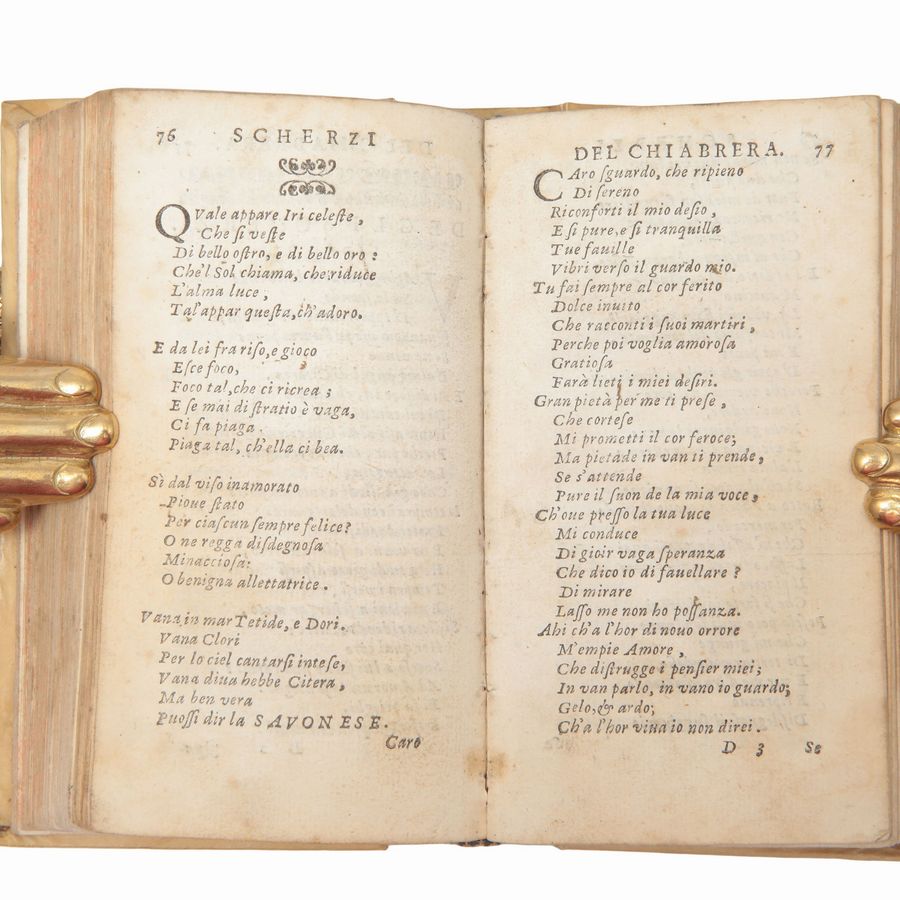 76 SCHERZI
QVale appare Iri celeſte,
Che ſi veſte
Di bello oſtro, e di bello oro:
Che'l Sol chiama, che riduce
L'alma luce,
Tal'appar queſta, ch'adoro.
E da lei fra riſo, e gioco
Eſce foco,
Foco tal, che ci ricrea;
E ſe mai di ſtratio è vaga,
Ci fa piaga.
Piaga tal, ch'ella ci bea.
Sè dal viſo inamorato
Pioue ſtato
Per ciaſcun ſempre felice?
O ne regga diſdegnoſa
Minaccioſa:
O benigna allettatrice.
Vana in mar Tetide, e Dori.
Vana Clori
Per lo ciel cantarſi inteſe,
Vana diua hebbe Citera,
Ma ben vera
Puoſſi dir la SAVONESE.
Caro
DEL CHIABRERA. 77
CAro ſguardo, che ripieno
Di ſereno
Riconforti il mio deſio,
E ſi pure, e ſi tranquilla
Tue fauille
Vibri verſo il guardo mio.
Tu fai ſempre al cor ferito
Dolce inuito
Che racconti i ſuoi martiri,
Perche poi voglia amoroſa
Gratioſa
Farà lieti i miei deſiri.
Gran pietà per me ti preſe,
Che corteſe
Mi prometti il cor feroce;
Ma pietade in van ti prende,
Se s'attende
Pure il ſuon de la mia voce,
Ch'oue preſſo la tua luce
Mi conduce
Di gioir vaga ſperanza
Che dico io di fauellare?
Di mirare
Laſſo me non ho poſſanza.
Ahi ch'a l'hor di nouo orrore
M'empie Amore,
Che diſtrugge i penſier miei;
In van parlo, in vano io guardo;
Gelo, & ardo;
Ch'a l'hor viua io non direi.
D 3 Se